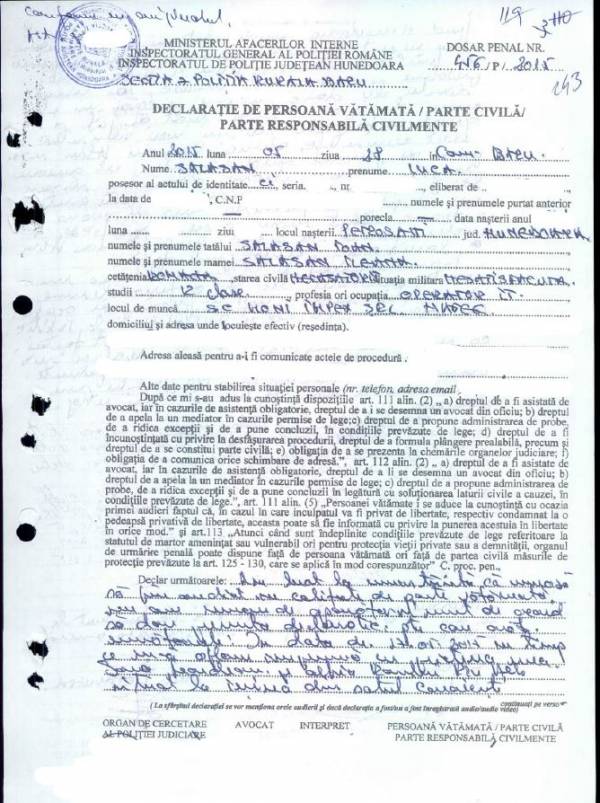 Conform cu originalul,
119
110
MINISTERUL AFACERILOR INTERNE
INSPECTORATUL GENERAL AL POLIȚIEI ROMÂNE
INSPECTORATUL DE POLIȚIE JUDEȚEAN HUNEDOARA
SECȚIA 7 POLIȚIA RURALĂ BARU
DOSAR PENAL NR.
416/P/2015
143
DECLARAȚIE DE PERSOANĂ VĂTĂMATĂ / PARTE CIVILĂ/
PARTE RESPONSABILĂ CIVILMENTE
Anul 2015 luna 05 ziua 28 în Com. BARU.
Nume SALASAN prenume LUCA
posesor al actului de identitate CI, seria , nr , eliberat de
la data de , C.N.P , numele și prenumele purtat anterior
porecla — data nașterii anul
luna ziu locul nașterii PETROSANI jud. HUNEDOARA
numele și prenumele tatălui SALASAN IOAN
numele și prenumele mamei SALASAN ILEANA
cetățenia ROMANA, starea civilă NECASATORIT situația militara NESATISFACUTA
studii 12 clase, profesia ori ocupația OPERATOR IT.
locul de muncă SC IMPEX SRL
domiciliul și adresa unde locuiește efectiv (reședința).
Adresa aleasă pentru a-i fi comunicate actele de procedură
Alte date pentru stabilirea situației personale (nr. telefon, adresa email
După ce mi s-au adus la cunoștință dispozițiile art. 111 alin. (2) „ a) dreptul de a fi asistată de
avocat, iar în cazurile de asistență obligatorie, dreptul de a i se desemna un avocat din oficiu; b) dreptul
de a apela la un mediator în cazurile permise de lege;c) dreptul de a propune administrarea de probe,
de a ridica excepții și de a pune concluzii, în condițiile prevăzute de lege; d) dreptul de a fi
încunoștințată cu privire la desfășurarea procedurii, dreptul de a formula plângere prealabilă, precum și
dreptul de a se constitui parte civilă; e) obligația de a se prezenta la chemările organelor judiciare; f)
obligația de a comunica orice schimbare de adresă.”, art. 112 alin. (2) „ a) dreptul de a fi asistate de
avocat, iar în cazurile de asistență obligatorie, dreptul de a li se desemna un avocat din oficiu; b)
dreptul de a apela la un mediator în cazurile permise de lege; c) dreptul de a propune administrarea de
probe, de a ridica excepții și de a pune concluzii în legătură cu soluționarea laturii civile a cauzei, în
condițiile prevăzute de lege.”, art. 111 alin. (5) „Persoanei vătămate i se aduce la cunoștință cu ocazia
primei audieri faptul că, în cazul în care inculpatul va fi privat de libertate, respectiv condamnat la o
pedeapsă privativă de libertate, aceasta poate să fie informată cu privire la punerea acestuia în libertate
în orice mod.” și art.113 „Atunci când sunt îndeplinite condițiile prevăzute de lege referitoare la
statutul de martor amenințat sau vulnerabil ori pentru protecția vieții private sau a demnității, organul
de urmărire penală poate dispune față de persoana vătămată ori față de partea civilă măsurile de
protecție prevăzute la art. 125 - 130, care se aplică în mod corespunzător” C. proc. pen.,
Declar următoarele: Am luat la cunostinta că urmează
să fiu audiat cu calitate de parte vătămată
sunt de acord
să dau prezenta declaratie în care arăt
următoarele: În data de 2015 în timp
ce mă aflam împreună cu
din satul
continuați pe verso
( La sfârșitul declarației se vor menționa orele audierii și dacă declarația a fost/nu a fost înregistrată audio/audio video)
ORGAN DE CERCETARE AVOCAT INTERPRET PERSOANĂ VĂTĂMATĂ / PARTE CIVILĂ
AL POLIȚIEI JUDICIARE PARTE RESPONSABILĂ CIVILMENTE